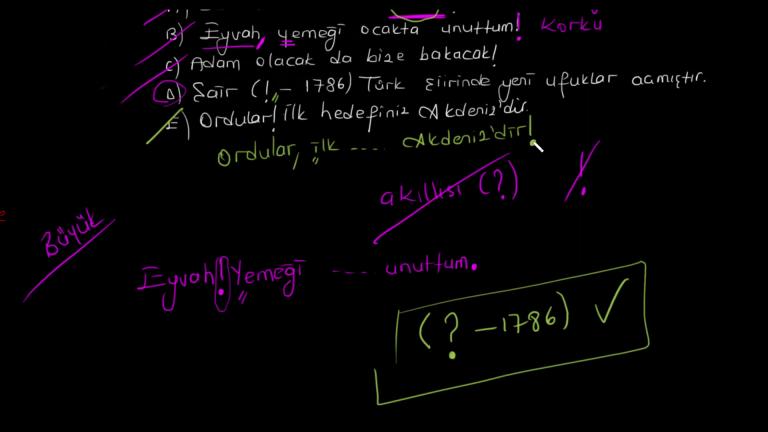 B) Eyvah, yemeği ocakta unuttum! Korku
C) Adam olacak da bize bakacak!
D) Şair (! - 1786) Türk şiirinde yeni ufuklar açmıştır.
E) Ordular! İlk hedefiniz Akdeniz'dir.
Ordular, ilk ---- Akdeniz'dir!
akıllısı (?) !
Büyük
Eyvah! Yemeği --- unuttum.
(? - 1786) ✓